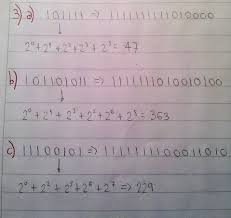 3) a) 101111 => 1111111111010000
2⁰+2¹+2²+2³+2⁵ = 47
b) 101101011 => 1111111010010100
2⁰+2¹+2³+2⁵+2⁶+2⁸ = 363
c) 11100101 => 1111111100011010
2⁰+2²+2⁵+2⁶+2⁷ => 229